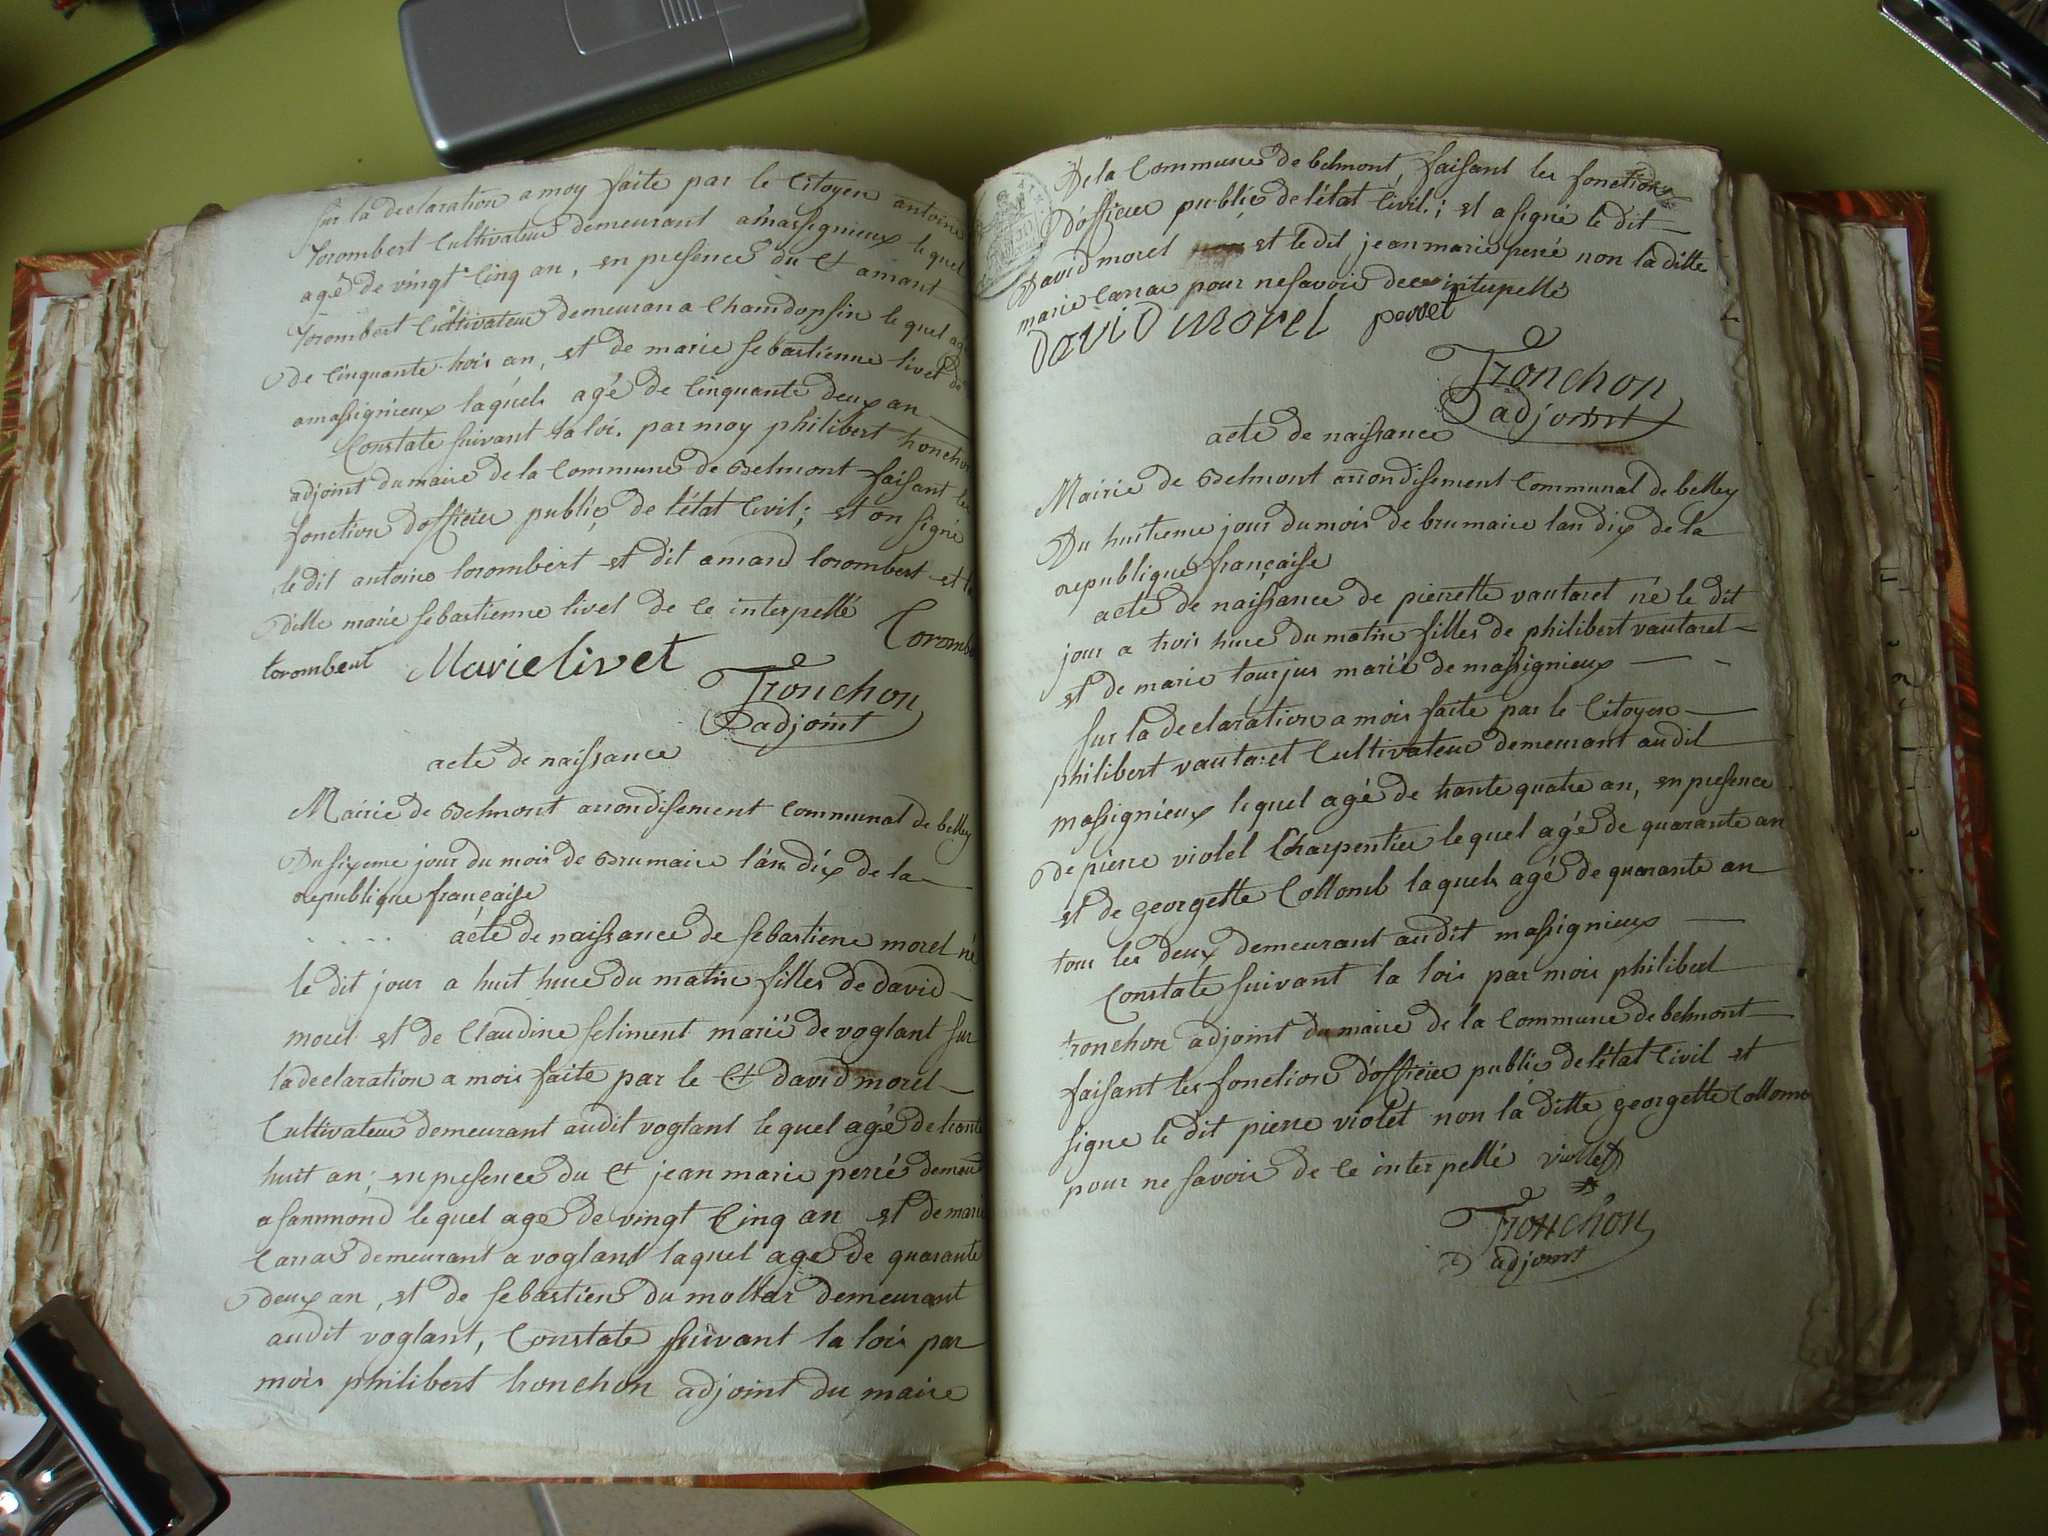 sur la declaration a moy faite par le Citoyen antoine
torombert Cultivateur demeurant a massignieux le quel
agé de vingt Cinq an, en presence du Ct amant
torombert Cultivateur demeuran a Chamdopsin le quel agé
de Cinquante trois an, et de marie sebastienne livet de
amassignieux laquels agé de Cinquante deux an
Constate suivant la loi. par moy philibert tronchon
adjoint du maire de la Commune de Belmont faisant les
fonction d'officier public de l'état Civil; et on signé
le dit antoine torombert et dit amand torombert et la
ditte marie sebastienne livet de Ce interpellé Torombe
torombent Marie livet
Tronchon
adjoint
acte de naissance
Mairie de Belmont arrondisement Communal de belley
Du sixeme jour du mois de Brumaire l'an dix de la
republique française
acte de naissance de sebastiene morel né
le dit jour a huit hure du matin filles de david
morel et de Claudine seliment marié de voglant sur
la declaration a mois faite par le Ct david morel
Cultivateur demeurant audit voglant le quel agé de trante
huit an; en presence du Ct jean marie perré demeu
a sammond le quel age de vingt Cinq an et de marie
Carras demeurant a voglant laquel age de quarante
deux an, et de sebastien du mollar demeurant
audit voglant, Constate suivant la lois par
mois philibert tronchon adjoint du maire
De la Commune de belmont, faisant les fonctions
d'officier public de l'état Civil; et a signé le dit
David morel et le dit jean marie perré non la ditte
marie Carras pour ne savoir de ce interpellé
DaviD Morel perret
Tronchon
adjoint
acte de naissance
Mairie de Belmont arrondisement Communal de belley
Du huitieme jour du mois de brumaire lan dix de la
republique française
acte de naissance de pierrette vautaret né le dit
jour a trois hure du matin filles de philibert vautaret
et de marie tourjus marié de massignieux
sur la declaration a mois faite par le Citoyen
philibert vautaret Cultivateur demeurant audit
massignieux lequel agé de trante quatre an, en presence
de pierre violet Charpentier lequel agé de quarante an
et de georgette Collomb laquels agé de quarante an
tous les deux demeurant audit massignieux
Constate suivant la lois par mois philibert
tronchon adjoint du maire de la Commune de belmont
faisant les fonction d'officier public de l'état Civil et
signe le dit pierre violet non la ditte georgette Collomb
pour ne savoir de Ce interpellé violet
Tronchon
adjoint